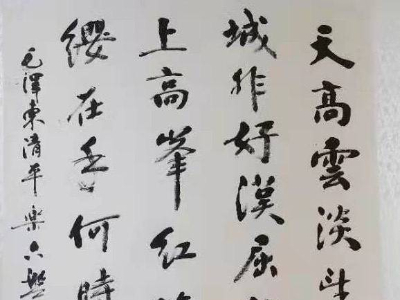 天高雲淡
城非好漢屈
上高峯紅
纓在手何時
毛澤東清平樂六盤